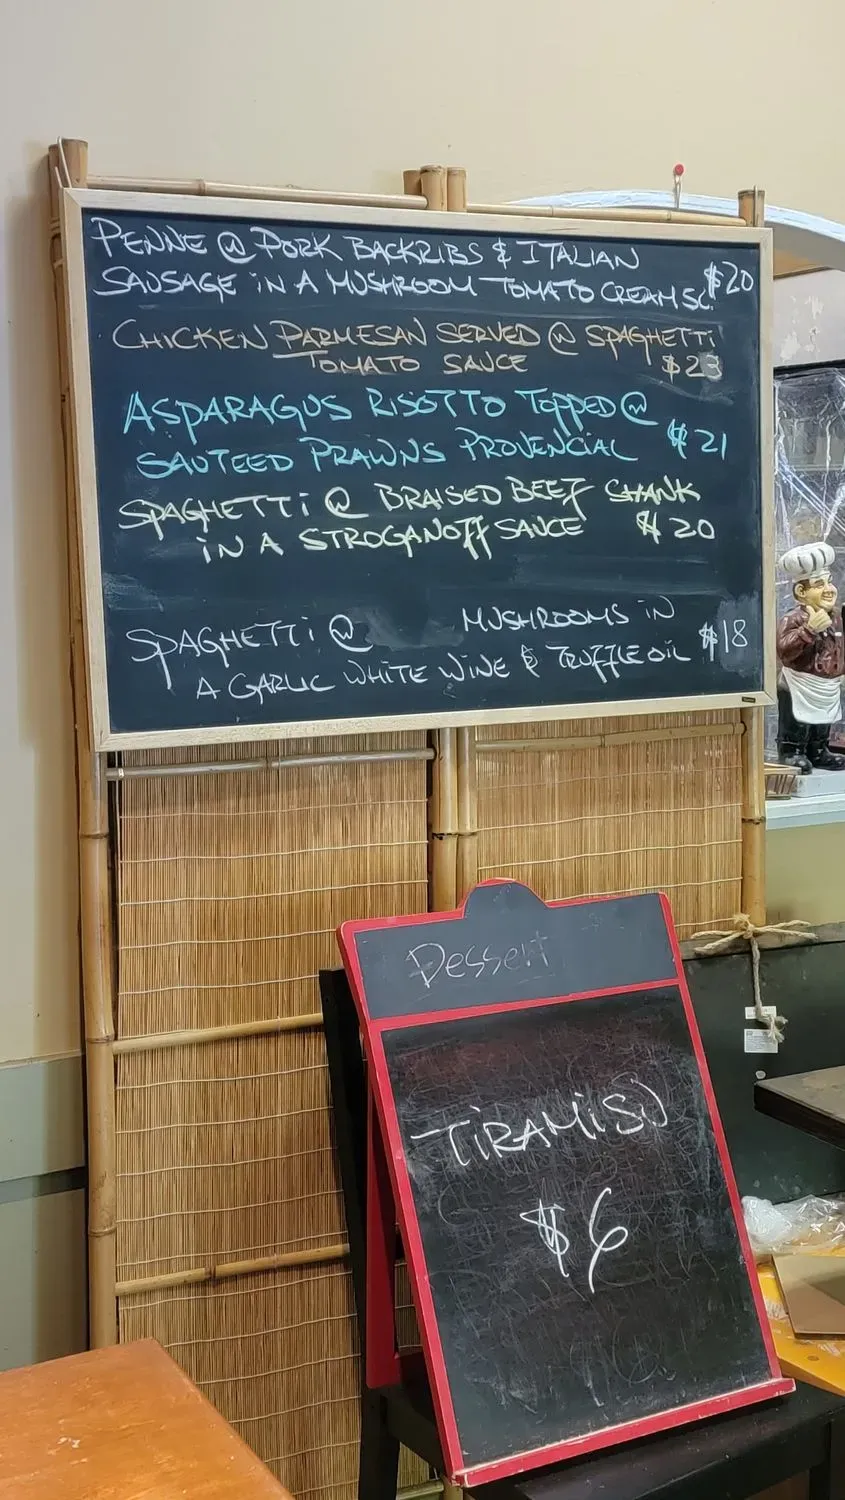 PENNE @ PORK BACKRIBS & ITALIAN
SAUSAGE IN A MUSHROOM TOMATO CREAM SC $20
CHICKEN PARMESAN SERVED @ SPAGHETTI
TOMATO SAUCE $23
ASPARAGUS RISOTTO TOPPED @
SAUTEED PRAWNS PROVENCIAL $21
SPAGHETTI @ BRAISED BEEF SHANK
IN A STROGANOFF SAUCE $20
SPAGHETTI @ MUSHROOMS IN
A GARLIC WHITE WINE & TRUFFLE OIL $18
Dessert
TIRAMISU
$6